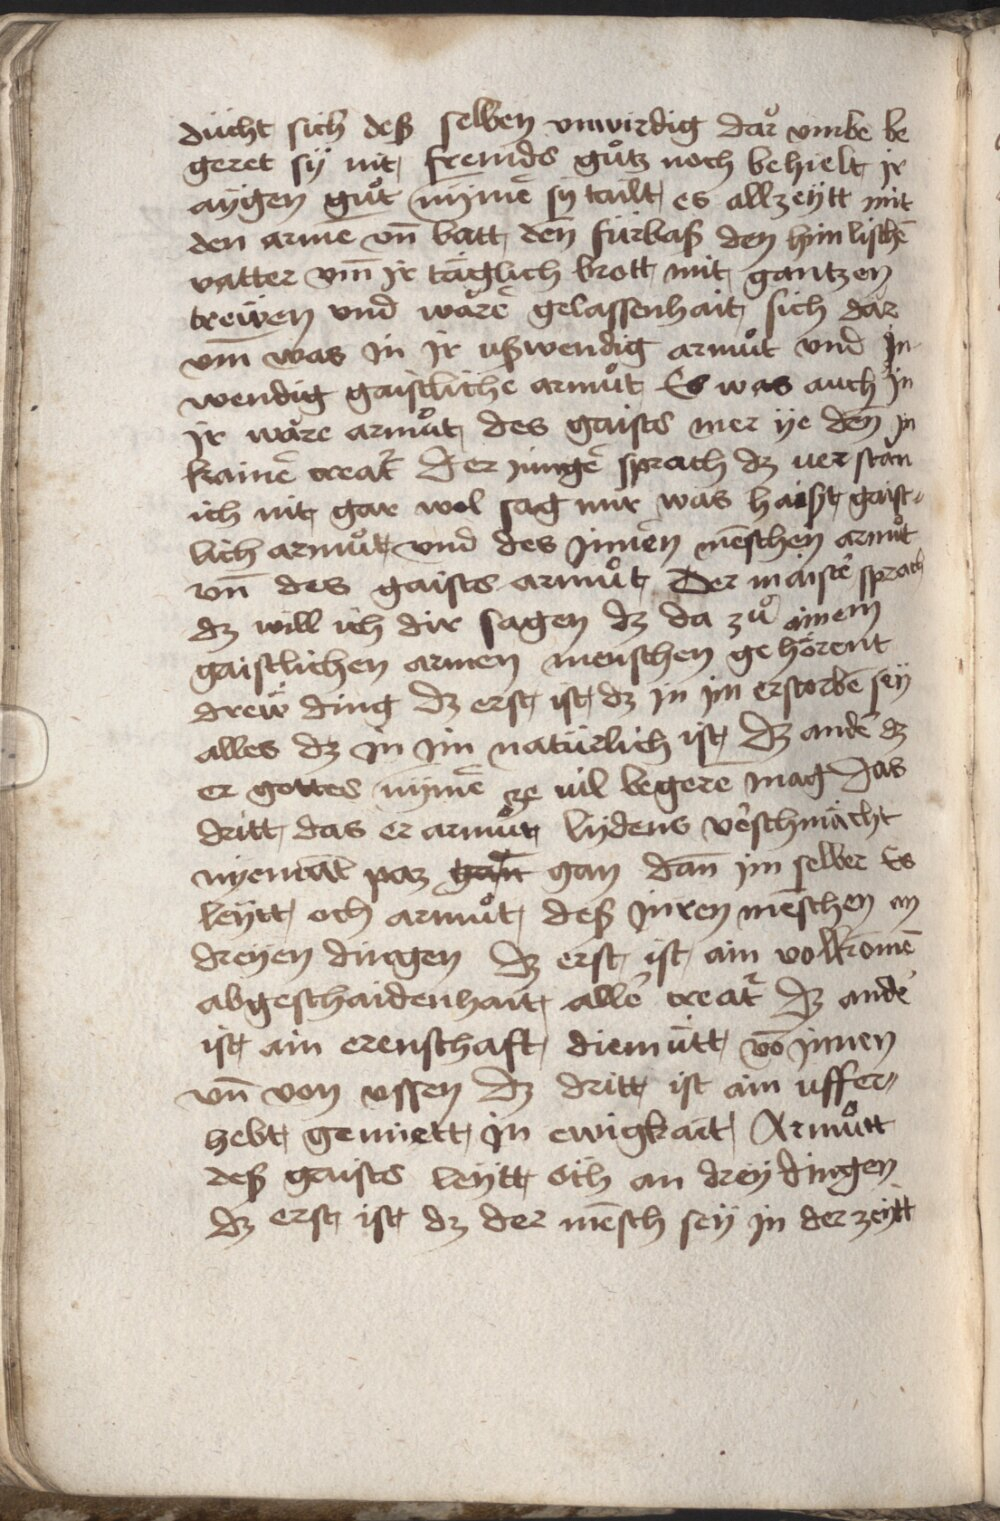 dücht sich deß selben vnwirdig dar vmbe be
geret sÿ nit fremds gůtz noch behielt ir
aÿgen gůt nÿmē sÿ tailt es allzeÿtt mit
den armē vn̄ batt den̄ fürbaß den himlischē
vatter vm̄ ir täglich brott mit gantzen
treẅen vnd warē gelassenhait sich dar
vm̄ was in ir ußwendig armůt vnd in
wendig gaistliche armůt Es was auch in
ir ware armůt des gaists mer ÿe den̄ in
kainē creat᷑ Der iungē sprach dz verstan
ich nit gar wol sag mir was haist gaist-
lich armůt vnd des innern mēschen armůt
vn̄ des gaists armůt Der maistē sprach
dz will ich dir sagen dz da zů ainem
gaistlichen armen menschen gehörent
dreẅ ding Dz erst ist dz in im erstorbē seÿ
alles dz in im natürlich ist Dz andē dz
er gottes nÿmē ze uil begerē mag Das
dritt das er armůt lÿdens vēschmächt
nÿemāt paz gan dan̄ im selber Es
leÿtt och armůt deß inren mēschen an
dreÿen dingen Dz erst ist ain volkomē
abgeschaidenhait allē creat᷑ Dz andē
ist ain erenschaft diemütt vō innen
vn̄ von vssen Dz dritt ist ain uffer-
hebt gemiett in ewigkait Armůtt
deß gaists leÿtt och an dreÿ dingen
Dz erst ist dz der mēsch seÿ in der zeÿtt